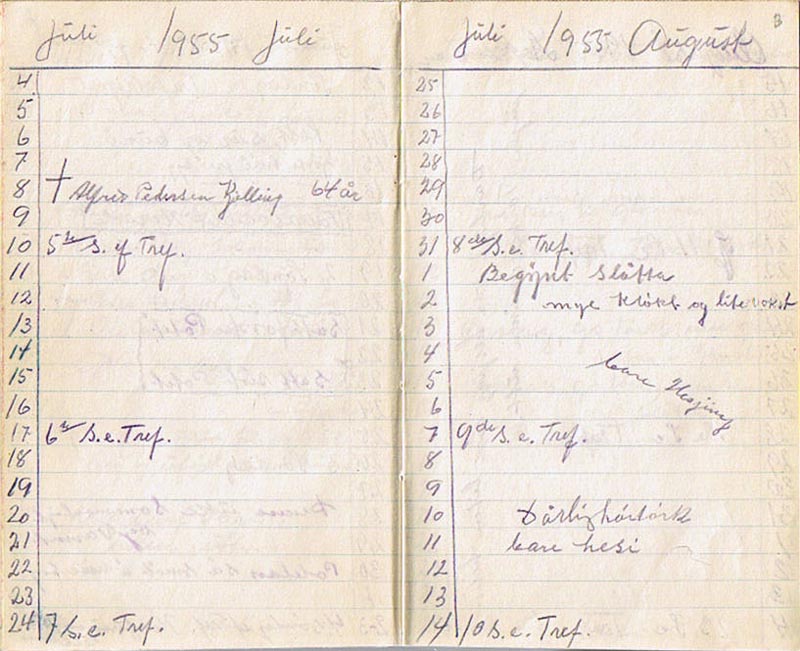 Juli 1955 Juli
4
5
6
7
8 † Alfred Pedersen Kjelling 64 år
9
10 5te S. ef Tref.
11
12
13
14
15
16
17 6te S.e.Tref.
18
19
20
21
22
23
24 7 S.e. Tref.
Juli 1955 August 3
25
26
27
28
29
30
31 8de S.e. Tref.
1 Begynt Slåtta
2 mye kløkt og lite vokst
3
4
5 bare Hesjing
6
7 9de S.e. Tref.
8
9
10 Dårlig hårtørk
11 bare hesi
12
13
14 10 S.e. Tref.